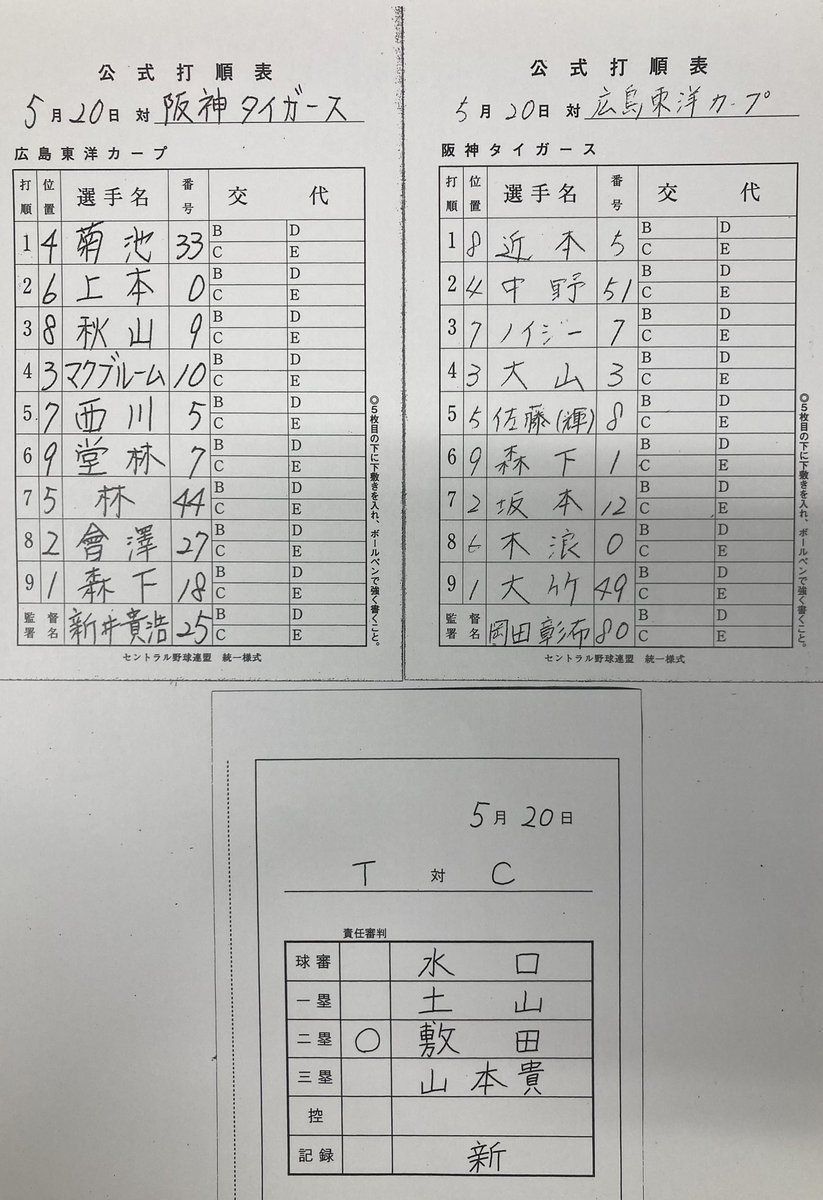 公式打順表
5月20日 対 阪神タイガース
広島東洋カープ
打順 位置 選手名 番号 交代
1 4 菊池 33 B D C E
2 6 上本 0 B D C E
3 8 秋山 9 B D C E
4 3 マクブルーム 10 B D C E
5 7 西川 5 B D C E
6 9 堂林 7 B D C E
7 5 林 44 B D C E
8 2 會澤 27 B D C E
9 1 森下 18 B D C E
監督署名 新井貴浩 25 B D C E
セントラル野球連盟 統一様式
◎5枚目の下に下敷きを入れ、ボールペンで強く書くこと。
公式打順表
5月20日 対 広島東洋カープ
阪神タイガース
打順 位置 選手名 番号 交代
1 8 近本 5 B D C E
2 4 中野 51 B D C E
3 7 ノイジー 7 B D C E
4 3 大山 3 B D C E
5 5 佐藤(輝) 8 B D C E
6 9 森下 1 B D C E
7 2 坂本 12 B D C E
8 6 木浪 0 B D C E
9 1 大竹 49 B D C E
監督署名 岡田彰布 80 B D C E
セントラル野球連盟 統一様式
◎5枚目の下に下敷きを入れ、ボールペンで強く書くこと。
5月20日
T 対 C
責任審判
球審 水口
一塁 土山
二塁 ○ 敷田
三塁 山本貴
控
記録 新